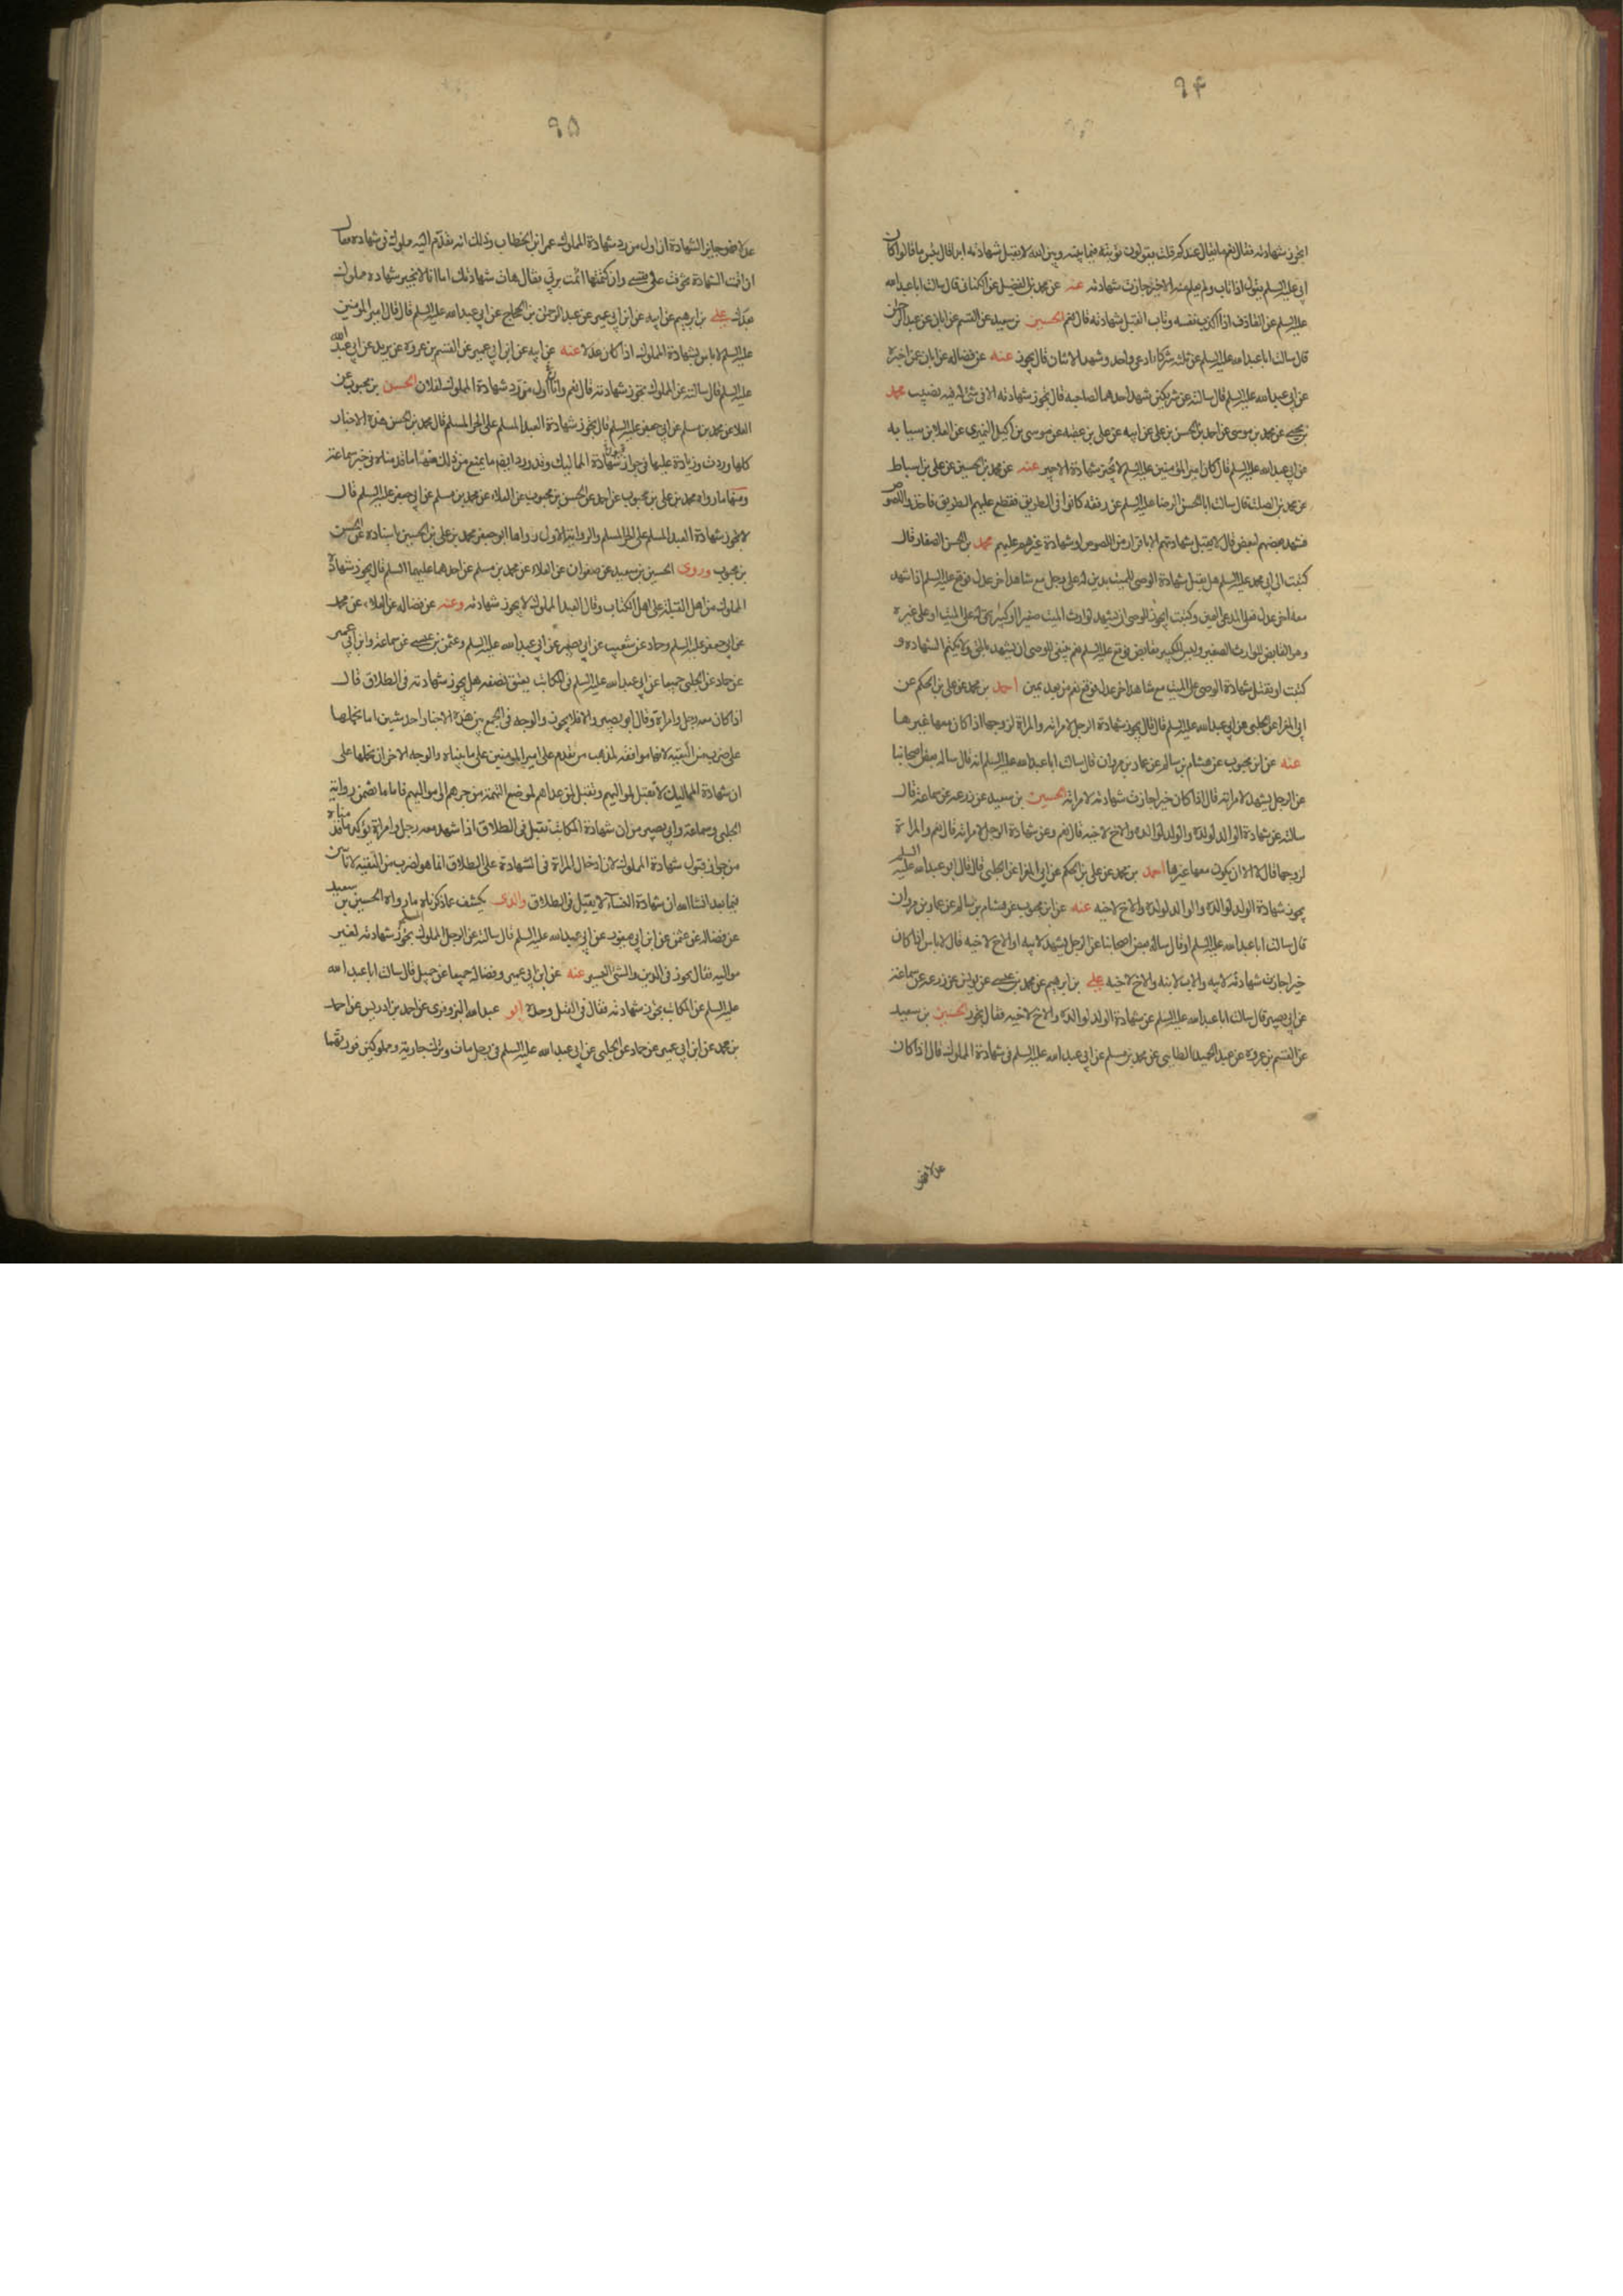 ٩٤
ايجوز شهادته فقال نعم ما يقال عندكم قلت يقولون توبته فيما بينه وبين الله لا يقبل شهادته ابدا قال بئس ما قالوا كان
ابي عليه السلم يقول اذا تاب ولم يعلم منه الا خير جازت شهادته عنه عن محمد بن الفضيل عن الكناني قال سالت ابا عبد الله
عليه السلم عن القاذف اذا اكذب نفسه وتاب اتقبل شهادته قال نعم الحسين بن سعيد عن القسم عن ابان عن عبد الرحمن
قال سالت ابا عبد الله عليه السلم عن ثلثه شركا ادعى واحد وشهد الاثنان قال يجوز عنه عن فضاله عن ابان عن اخبره
عن ابي عبد الله عليه السلم قال سالته عن شريكين شهد احدهما لصاحبه قال تجوز شهادته الا في شئ له فيه نصيب محمد
بن يحيى عن محمد بن موسى عن احمد بن الحسن بن علي عن ابيه عن علي بن عقبه عن موسى بن اكيل النميري عن العلا بن سيابه
عن ابي عبد الله عليه السلم قال كان امير المؤمنين عليه السلم لا يجيز شهادة الاجير عنه عن محمد بن الحسين عن علي بن اسباط
عن محمد بن الصلت قال سالت ابا الحسن الرضا عليه السلم عن رفقه كانوا في الطريق فقطع عليهم الطريق فاخذوا اللصوص
فشهد بعضهم لبعض قال لا يقبل شهادتهم الا باقرار من اللصوص او شهادة غيرهم عليهم محمد بن الحسن الصفار قال
كتبت الى ابي محمد عليه السلم هل يقبل شهادة الوصي للميت بدين له على رجل مع شاهد اخر عدل فوقع عليه السلم اذا شهد
معه اخر عدل فعلى المدعي اليمين وكتبت ايجوز للوصي ان يشهد لوارث الميت صغير او كبير بحق له على الميت او على غيره
وهو القابض للوارث الصغير وليس للكبير بقابض فوقع عليه السلم نعم ينبغي للوصي ان يشهد بالحق ولا يكتم الشهاده و
كتبت او تقبل شهادة الوصي على الميت مع شاهد اخر عدل فوقع نعم من بعد يمين احمد بن محمد عن علي بن الحكم عن
ابي المغرا عن الحلبي عن ابي عبد الله عليه السلم قال قال يجوز شهادة الرجل لامراته والمراة لزوجها اذا كان معها غيرها
عنه عن ابن محبوب عن هشام بن سالم عن عمار بن مروان قال سالت ابا عبد الله عليه السلم انه قال ساله بعض اصحابنا
عن الرجل يشهد لامراته قال اذا كان خيرا جازت شهادته لامراته الحسين بن سعيد عن زرعه عن سماعة قال
سالته عن شهادة الوالد لولده والولد لوالده والاخ لاخيه قال نعم وعن شهادة الرجل لامراته قال نعم والمراة
لزوجها قال لا الا ان يكون معها غيرها احمد بن محمد عن علي بن الحكم عن ابي المغرا عن الحلبي قال قال ابو عبد الله عليه السلم
يجوز شهادة الولد لوالده والوالد لولده والاخ لاخيه عنه عن ابن محبوب عن هشام بن سالم عن عمار بن مروان
قال سالت ابا عبد الله عليه السلم او قال ساله بعض اصحابنا عن الرجل يشهد لابيه او الاخ لاخيه قال لا باس اذا كان
خيرا جازت شهادته لابيه والاب لابنه والاخ لاخيه علي بن ابرهيم عن محمد بن عيسى عن يونس عن زرعه عن سماعة
عن ابي بصير قال سالت ابا عبد الله عليه السلم عن شهادة الولد لوالده والاخ لاخيه فقال يجوز الحسين بن سعيد
عن القسم بن عروه عن عبد الحميد الطائي عن محمد بن مسلم عن ابي عبد الله عليه السلم في شهادة المملوك قال اذا كان
عدلا فهو
٩٥
عدلا فهو جايز الشهادة ان اول من رد شهادة المملوك عمر ابن الخطاب وذلك انه تقدم اليه مملوك في شهاده فقال
ان اقمت الشهادة تخوفت على نفسي وان كتمتها اثمت بربي فقال هات شهادتك اما انا لا نجيز شهاده مملوك
بعدك علي بن ابرهيم عن ابيه عن ابن ابي عمير عن عبد الرحمن بن الحجاج عن ابي عبد الله عليه السلم قال قال امير المومنين
عليه السلم لا باس بشهادة المملوك اذا كان عدلا عنه عن ابيه عن ابن ابي عمير عن القسم بن عروة عن بريد عن ابي عبد الله
عليه السلم قال سالته عن المملوك تجوز شهادته قال نعم وان اول من رد شهادة المملوك لفلان الحسن بن محبوب عن
العلا عن محمد بن مسلم عن ابي جعفر عليه السلم قال يجوز شهادة العبد المسلم على الحر المسلم قال محمد بن الحسن هذه الاخبار
كلها وردت وزيادة عليها في جواز شهادة المماليك وقد ورد ايضا ما يمنع من ذلك فمنها ما قدمناه في خبر سماعة
ومنها ما رواه محمد بن علي بن محبوب عن احمد عن الحسن بن محبوب عن العلاء عن محمد بن مسلم عن ابي جعفر عليه السلم قال
لا يجوز شهادة العبد المسلم على الحر المسلم والرواية الاولى رواها ابو جعفر محمد بن علي بن الحسين باسناده عن الحسن
بن محبوب وروى الحسين بن سعيد عن صفوان عن العلاء عن محمد بن مسلم عن احدهما عليهما السلم قال يجوز شهادة
المملوك من اهل القبلة على اهل الكتاب وقال العبد المملوك لا يجوز شهادته وعنه عن فضاله عن العلاء عن محمد
عن ابي جعفر عليه السلم وحماد عن شعيب عن ابي بصير عن ابي عبد الله عليه السلم وعثمن بن عيسى عن سماعة وابن ابي عمير
عن حماد عن الحلبي جميعا عن ابي عبد الله عليه السلم في المكاتب يعتق نصفه هل يجوز شهادته في الطلاق قال
اذا كان معه رجل وامراة وقال ابو بصير والا فلا يجوز والوجه في الجمع بين هذه الاخبار احد شيئين اما نحملها
على ضرب من التقيه لانها موافقه لمذهب من تقدم على امير المومنين على ما بيناه والوجه الاخر ان نحملها على
ان شهادة المماليك لا تقبل لمواليهم وتقبل لمن عداهم لموضع التهمة من جرهم الى مواليهم فاما ما تضمن رواية
الحلبي وسماعة وابي بصير من ان شهادة المكاتب تقبل في الطلاق اذا شهد معه رجل وامراة يوكد ما قدمناه
من جواز قبول شهادة المملوك لان ادخال المراة في الشهادة على الطلاق انما هو لضرب من التقيه لانا نبين
فيما بعد انشا الله ان شهادة النساء لا يقبل في الطلاق والذى يكشف عما ذكرناه ما رواه الحسين بن سعيد
عن فضاله عن عثمن عن ابن ابي يعفور عن ابي عبد الله عليه السلم قال سالته عن الرجل المملوك المسلم تجوز شهادته لغير
مواليه فقال يجوز في الدين والشئ اليسير عنه عن ابن ابي عمير وفضاله جميعا عن جميل قال سالت ابا عبد الله
عليه السلم عن المكاتب تجوز شهادته فقال في القتل وحده ابو عبد الله البزوفري عن احمد بن ادريس عن احمد
بن محمد عن ابن ابي عمير عن حماد عن الحلبي عن ابي عبد الله عليه السلم في رجل مات وترك جارية ومملوكين فورثهما